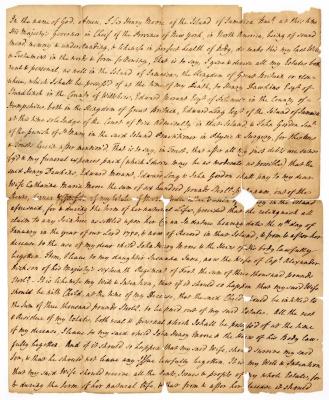 In the name of God, Amen, I Sir Henry Moore of the Island of Jamaica Bart. at this time
His Majesty's Governor in Chief of the Province of New York, in North America, being of sound
mind memory & understanding, & likewise in perfect health of body, do make this my last Will
& Testament in the words & form following, That is to say I give & devise all my Estates both
real & personal, as well in the Island of Jamaica, the Kingdom of Great Britain or else-
where, which I shall be possessed of at the time of my Death, to Henry Dawkins Esqr. of
in the County of Wiltshire, Edward Morant Esqr. of in the County of
Hampshire, both in the Kingdom of Great Britain, Edward Long Esqr. of the Island of Jamaica
at this time sole Judge of the Court of Vice Admiralty in that Island, & John Gordon
of the parish of St. Mary in the said Island Practitioner in Physic & Surgery, for the Uses
& Trusts herein after mention'd, That is to say, in trust, that after all my just debts are satisfied
& my funeral expences paid (which I desire may be as moderate as possible) that the
said Henry Dawkins, Edward Morant, Edward Long & John Gordon shall pay to my dear
Wife Catharina Maria Moore the sum of six hundred pounds Sterlg. Per annum out of the
of my Estate in the Island
aforesaid, for & during the term of her natural Life, provided that she relinquish all
claim to any Jointure as settled upon her by a Marriage Contract dated the 11th day of
January in the year of our Lord 1750, & now of Record in that Island, & from & after her
decease to the use of my dear child John Henry Moore & the Heirs of his body lawfully
begotten. Item, I leave to my daughter Susanna Jane, now the Wife of Capt. Alexander
Dickson of his Majesty's sixteenth Regiment of Foot the sum of three thousand pounds
Sterlg. It is likewise my Will & Intention, that if it should so happen that my said Wife
should be with Child at the time of my Decease that the said Child should be entitled to
the sum of three thousand pounds Sterlg. to be paid out of my said Estate. All the rest
& residue of my Estate, both real & personal which I shall be possessed of at the time
of my decease, I leave to my said child John Henry Moore & the Heirs of his Body law-
fully begotten. And if it should so happen that my said Wife should survive my said
Son, & that he should not leave any Issue lawfully begotten, It is my Will & Intention
that my said Wife should receive all the rents, issues & profits of my whole Estate, for
& during the term of her natural life & that from & after her decease, it should